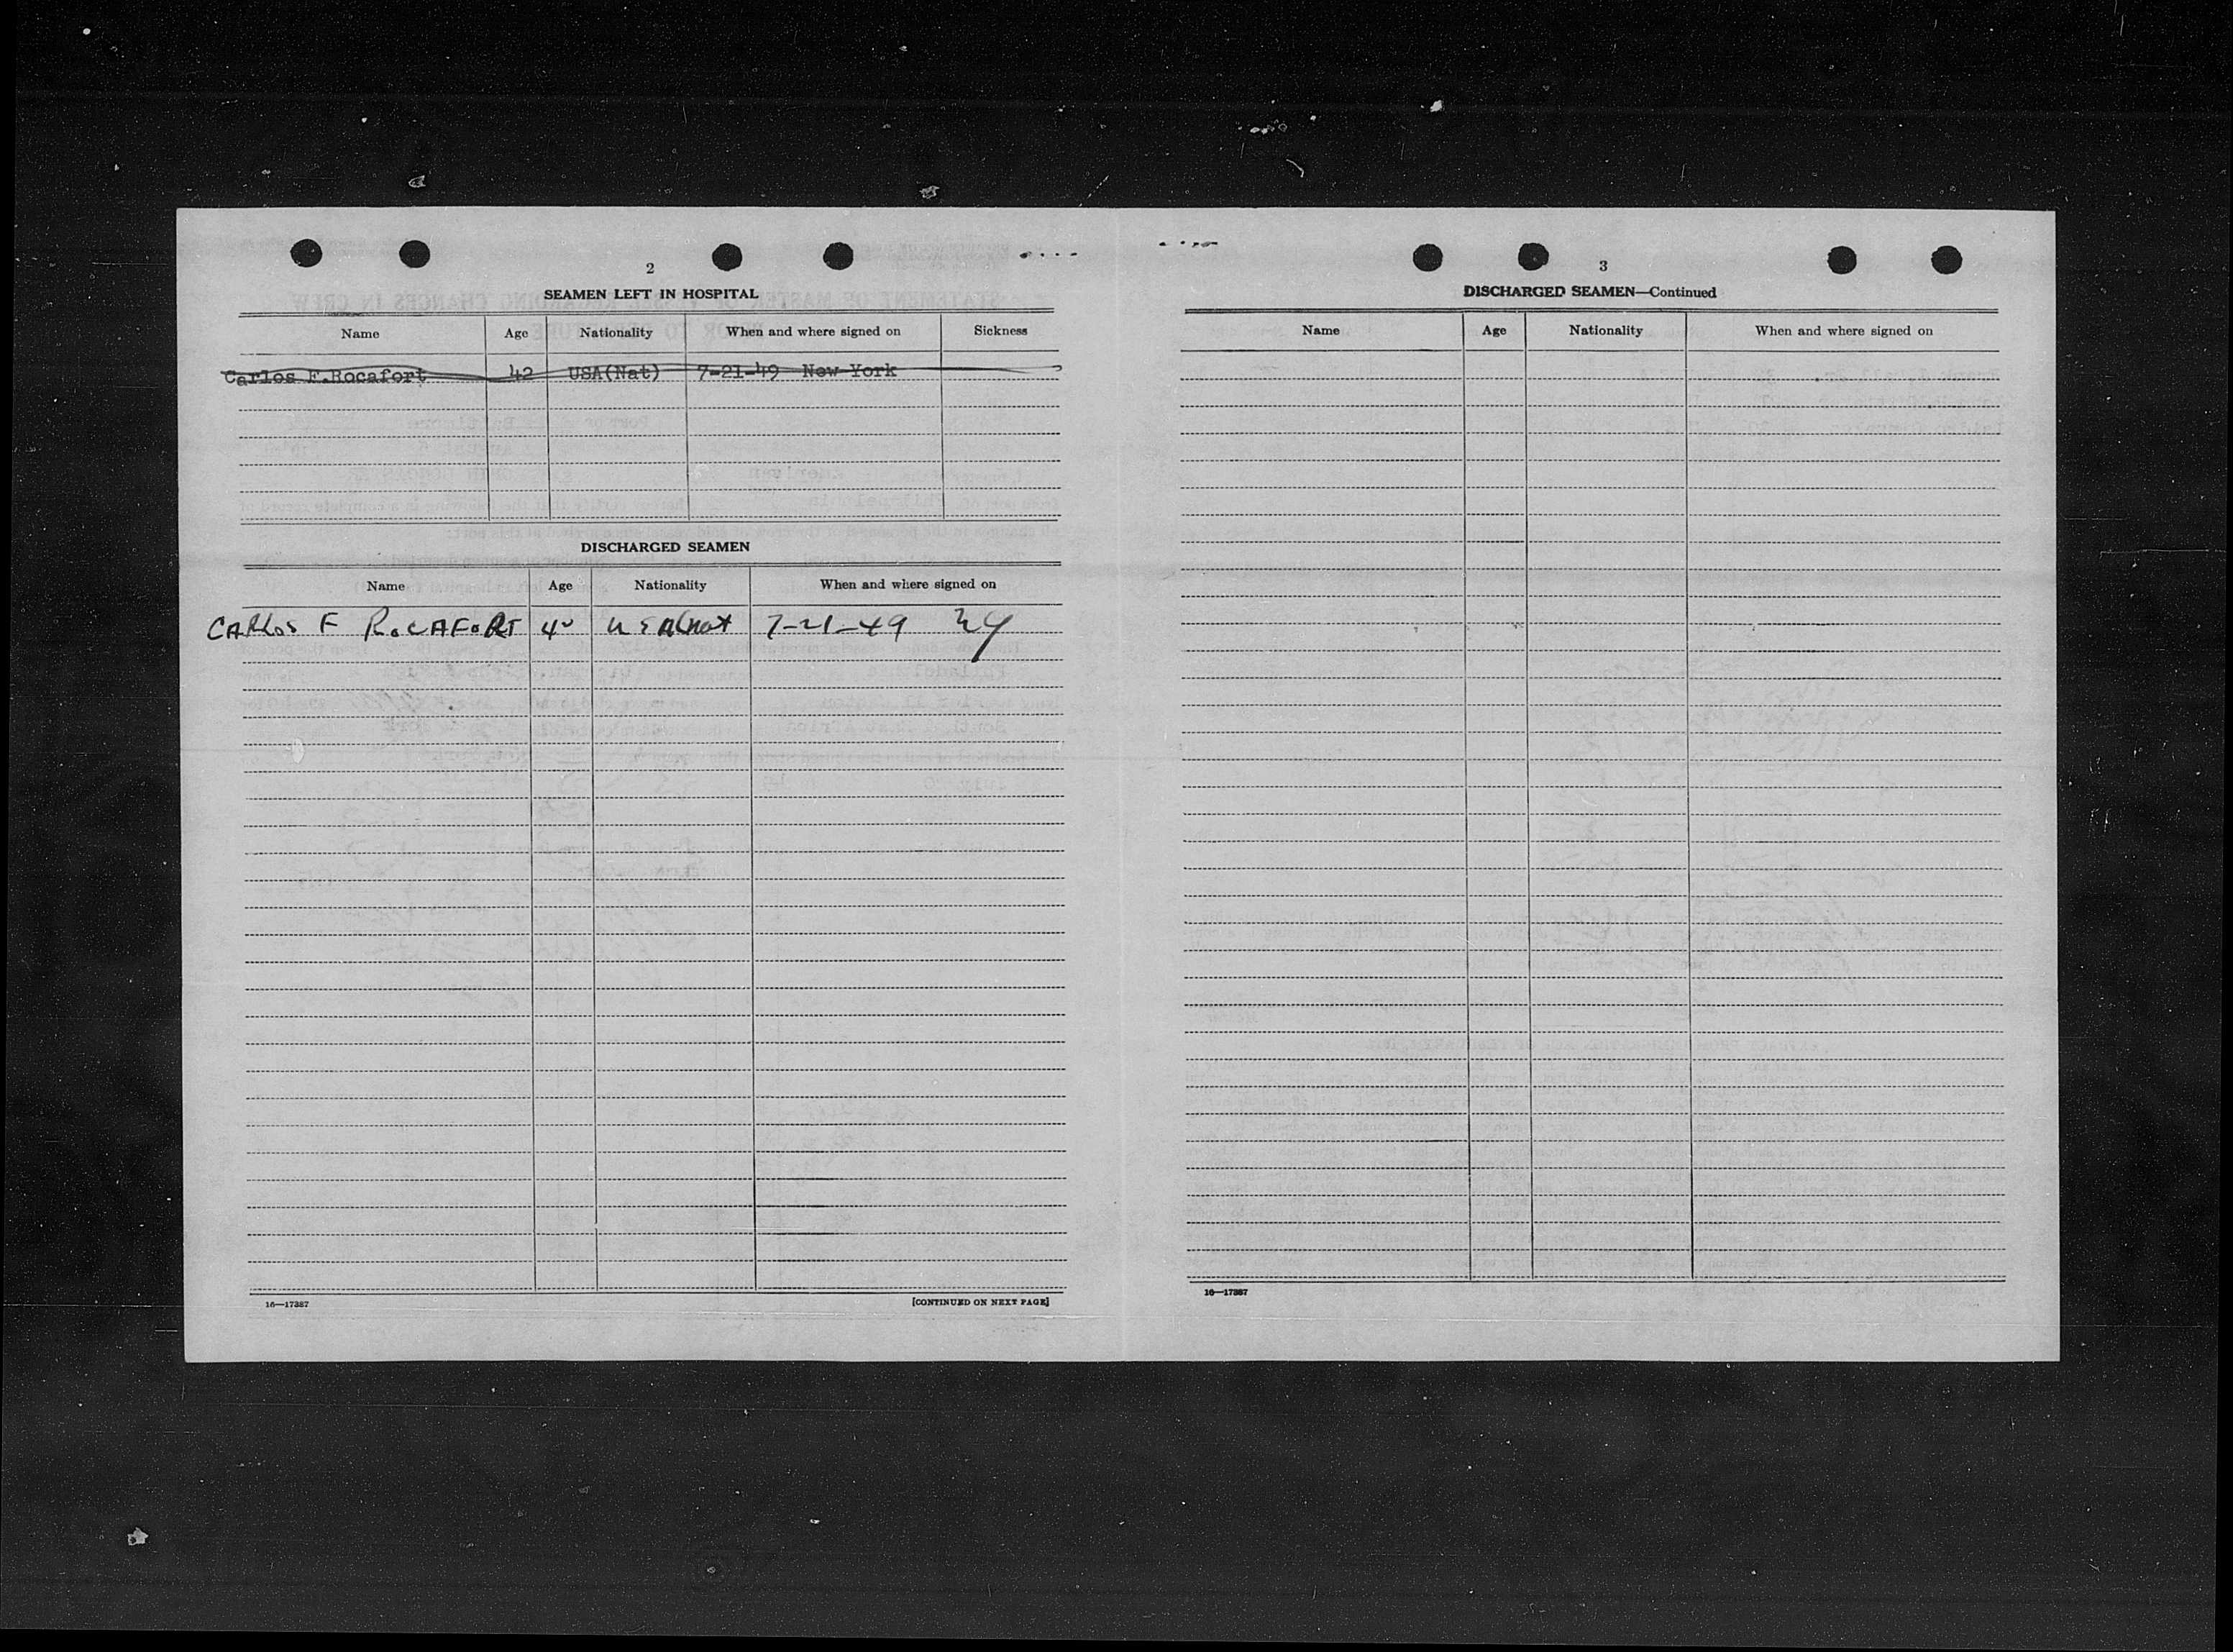 2
SEAMEN LEFT IN HOSPITAL
Name Age Nationality When and where signed on Sickness
Carlos F.Rocafort 42 USA(Nat) 7-21-49 New York
DISCHARGED SEAMEN
Name Age Nationality When and where signed on
CARLOS F ROCAFORT 42 USA(nat 7-21-49 NY
16—17387
[CONTINUED ON NEXT PAGE]
3
DISCHARGED SEAMEN—Continued
Name Age Nationality When and where signed on
16—17387